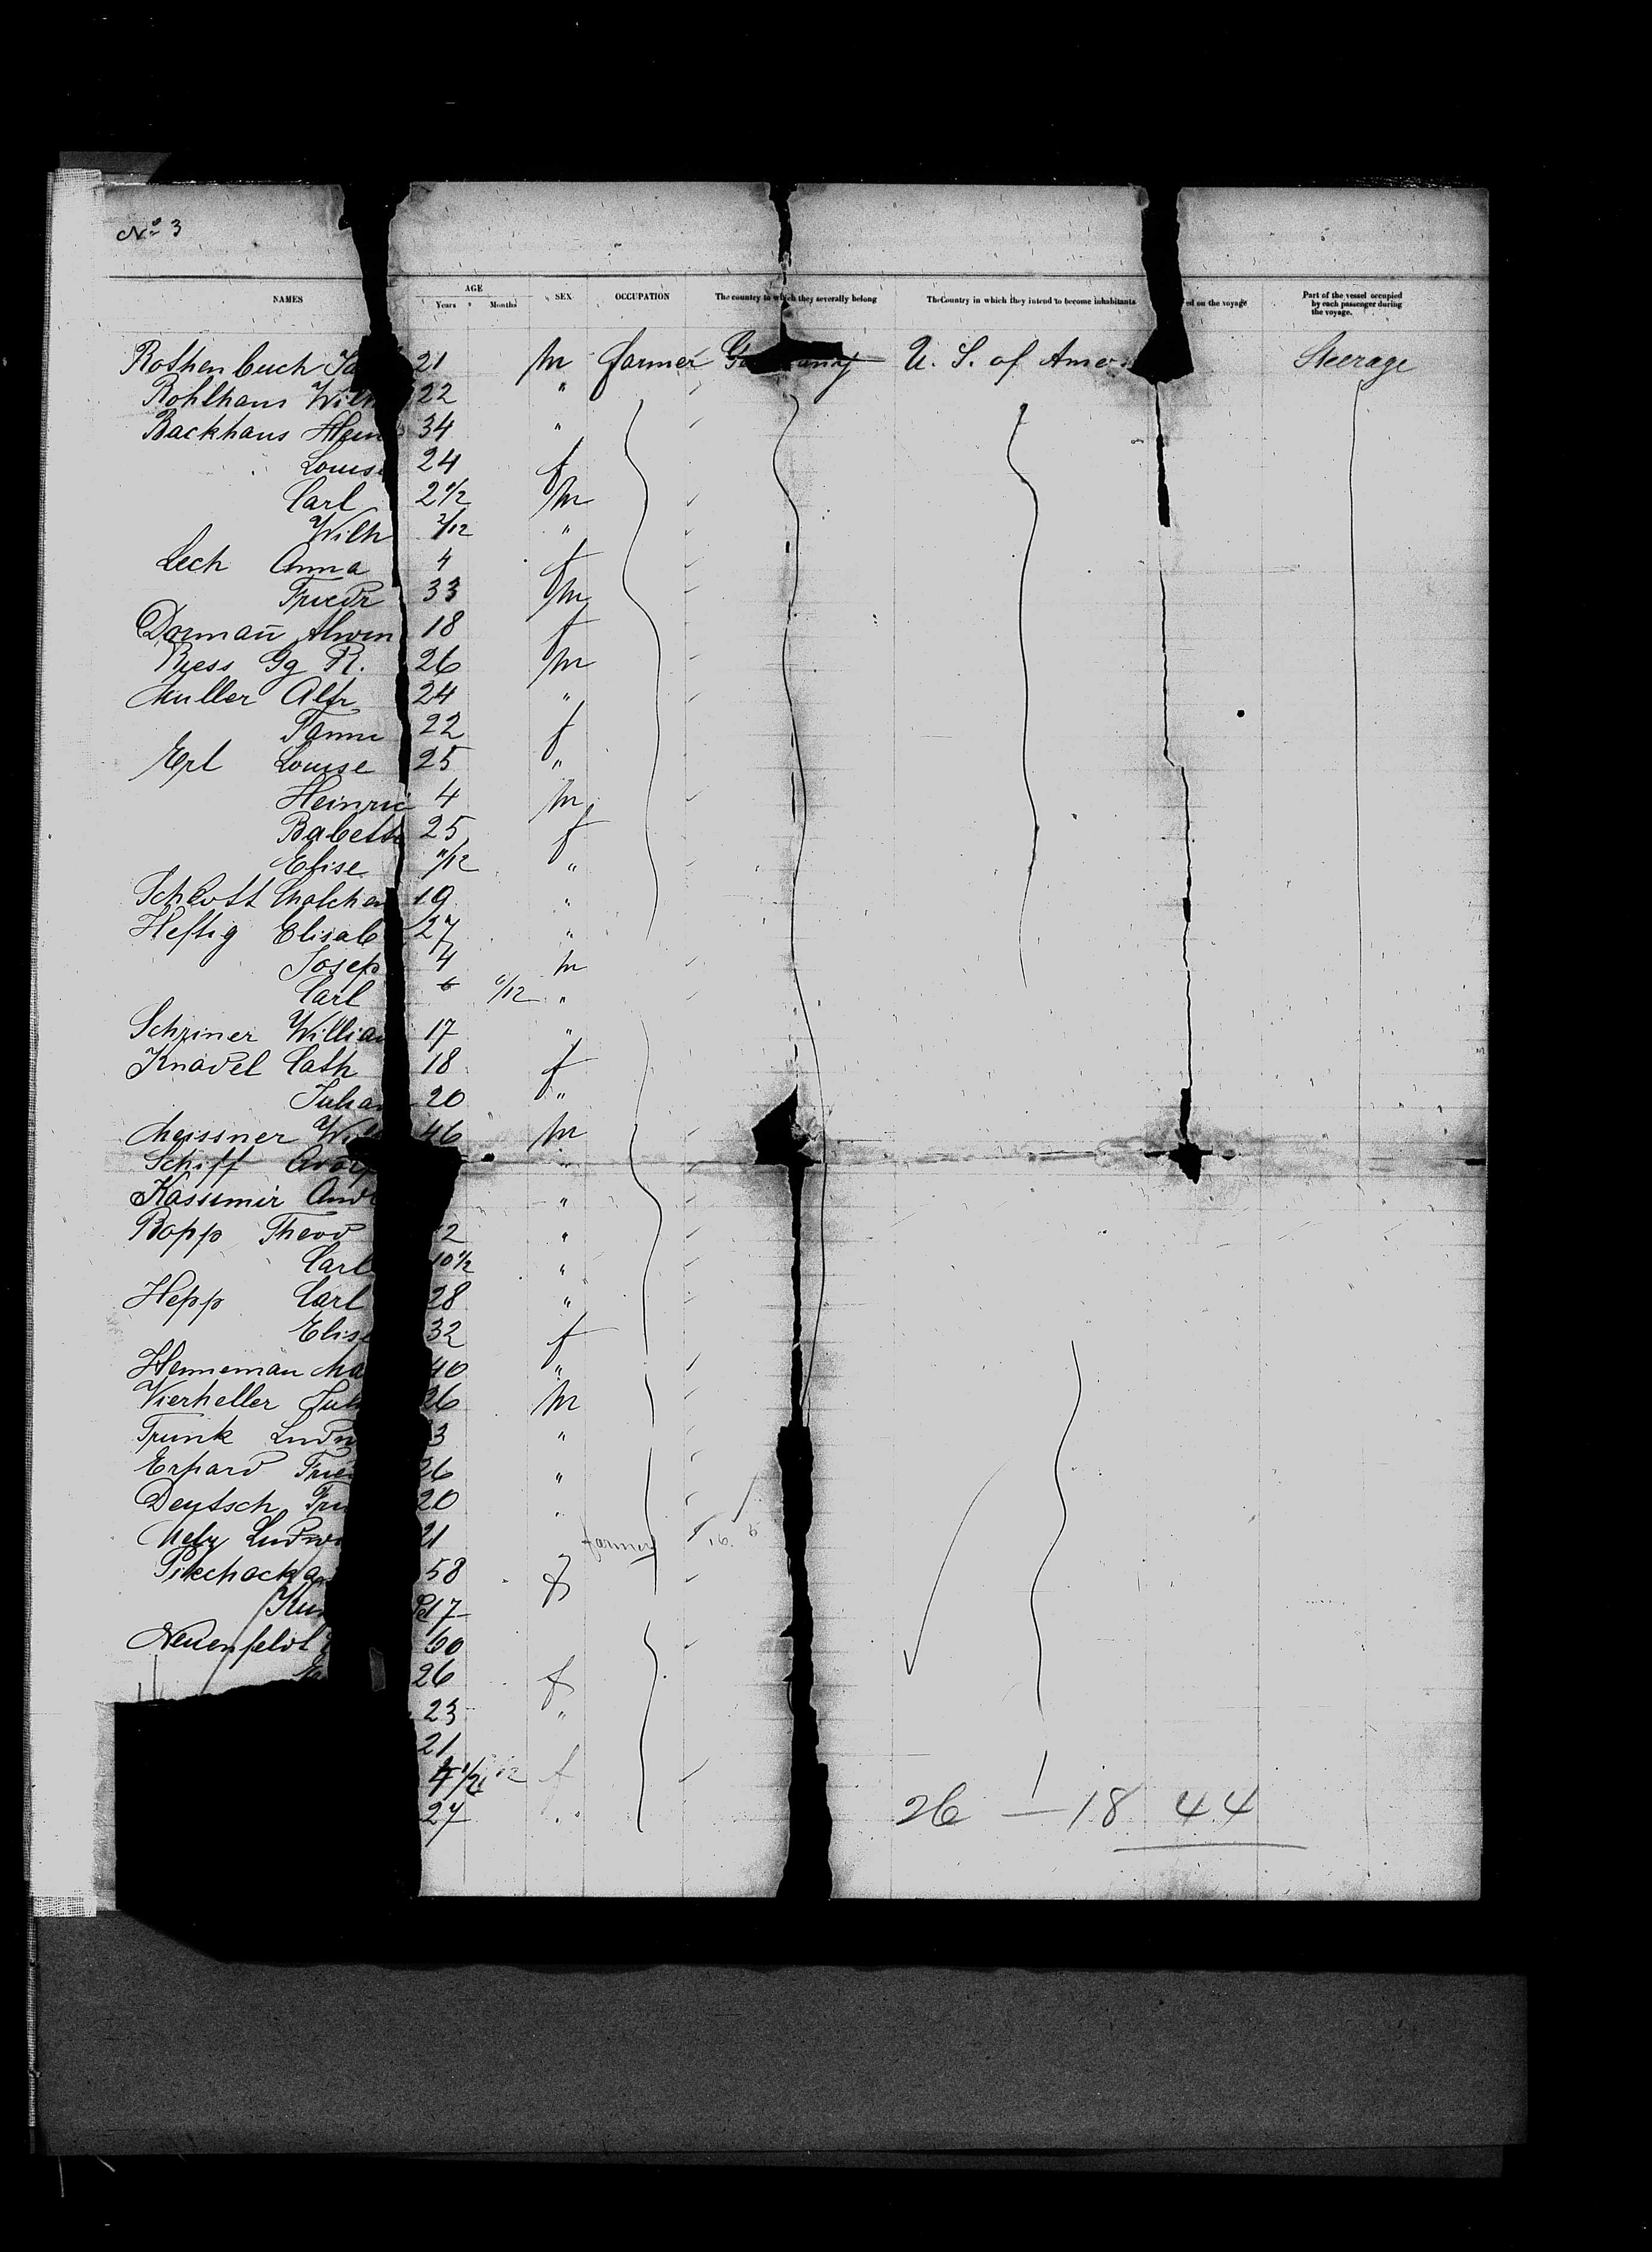 No 3
NAMES AGE Years Months SEX OCCUPATION The country to which they severally belong The Country in which they intend to become inhabitants ed on the voyage Part of the vessel occupied by each passenger during the voyage.
Rothenbuch 21 m farmer U. S. of Amer Steerage
Rohlhaus Wilh 22 "
Backhaus Hein 34 "
Louise 24 f
Carl 2 1/2 m
Wilh 2/12 "
Lech Anna 4 f
Friedr 33 m
Dormañ Alwin 18 f
Ryess Gg R. 26 m
Müller Alfr 24 "
Fanni 22 f
Erl Louise 25 "
Heinric 4 m
Babette 25 f
Elise 11/12 "
Schlott Malchen 19 "
Heftig Elisab 27 "
Josep 4 m
Carl 6/12 "
Schriner Willia 17 "
Knadel Cath 18 f
Julia 20 "
Meissner Wil 46 m
Schiff "
Kassimir And "
Bopp Theod 2 "
Carl 10 1/2 "
Hepp Carl 28 "
Elise 32 f
Henneman Ma 40 "
Vierheller Juli 26 m
Trunk Ludw 3 "
Erhard Fried 26 "
Deutsch Fri 20 "
Ludwi 21 farmer
58 f
17
Neuenfeldt 60
26 f
23 "
21
f
27 "
26 — 18 44